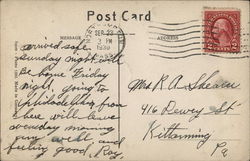 Post Card
MESSAGE
SEP 23
3 PM
1930
arrived safe
Sunday night will
be home Friday
night, going to
Philadelphia from
here will leave
Monday morning
well and
feeling good. Ray
Mrs R A Shearn
416 Dewey St
Kittanning
Pa